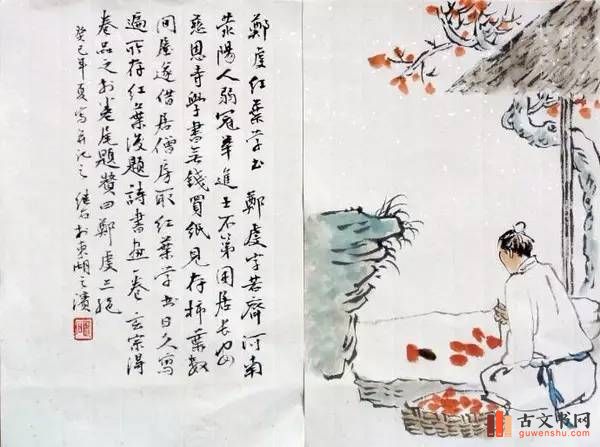 鄭虔紅葉学书 鄭虔字若齊河南
荥陽人弱冠举進士不第困居长安
慈恩寺學書无錢買紙見存柿葉數
间屋遂借居僧房取红葉学书日久寫
遍所存红葉後題詩書画一卷 玄宗得
卷品之於卷尾題贊曰鄭虔三絶
癸巳年夏写并记之 於東湖之濱
古文书网
guwenshu.com